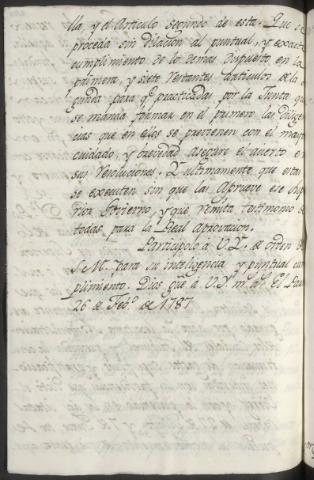 lla, y el Articulo segundo de esta. Que se
proceda sin dilacion al puntual, y exacto
cumplimiento de lo demas dispuesto en la
primera, y siete restantes articulos de la
gunda para qᵉ practicadas por la Junta que
se manda formar en el primero las diligen
cias que en ellos se previenen con el mayor
cuidado, y brevedad asegure el acierto en
sus resoluciones. Y ultimamente que estas
se executen sin que las Apruebe ese
rior Govierno, y que remita testimonio de
todas, para la Real Aprovacion.
Participolo á V.E. de orden de
S. M. para su inteligencia y puntual cum
plimiento. Dios gue á V.E. m. aˢ. El Pardo
26 de Febᵒ. de 1787